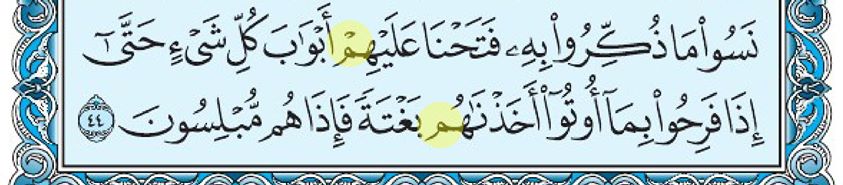 نَسُوا۟ مَا ذُكِّرُوا۟ بِهِۦ فَتَحْنَا عَلَيْهِمْ أَبْوَٰبَ كُلِّ شَىْءٍ حَتَّىٰٓ
إِذَا فَرِحُوا۟ بِمَآ أُوتُوٓا۟ أَخَذْنَٰهُم بَغْتَةً فَإِذَا هُم مُّبْلِسُونَ ٤٤